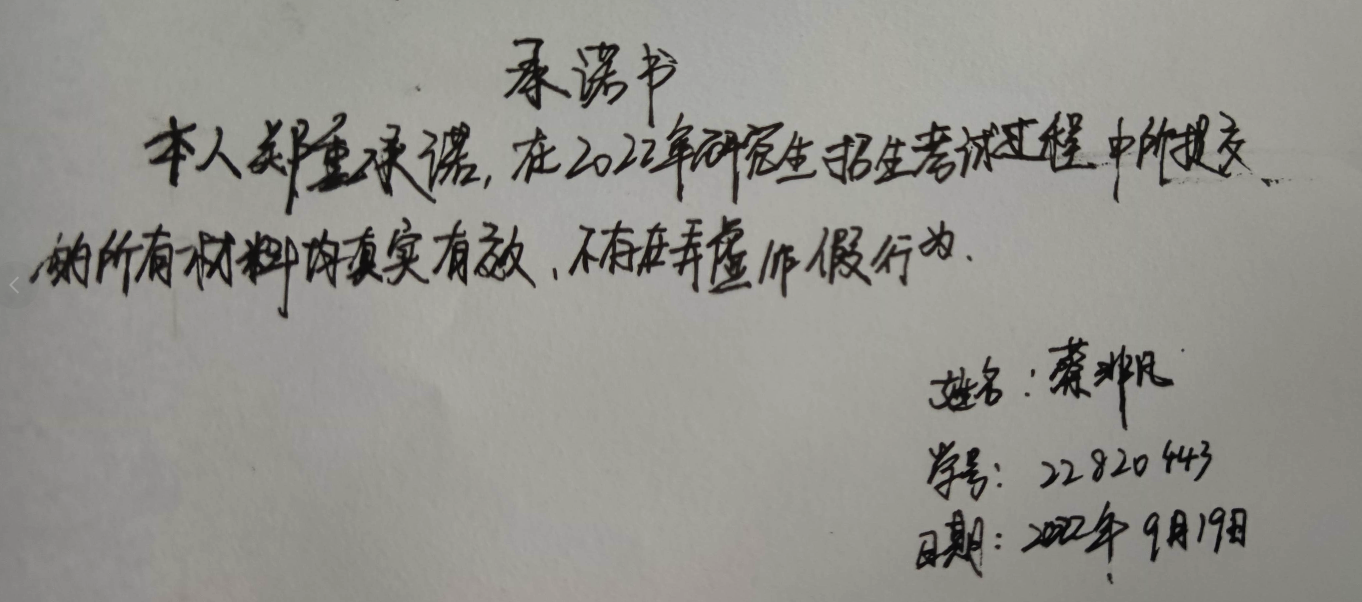 承诺书
本人郑重承诺,在2022年研究生招生考试过程中所提交
的所有材料均真实有效,不存在弄虚作假行为.
姓名:蔡非凡
学号:22820443
日期:2022年9月19日